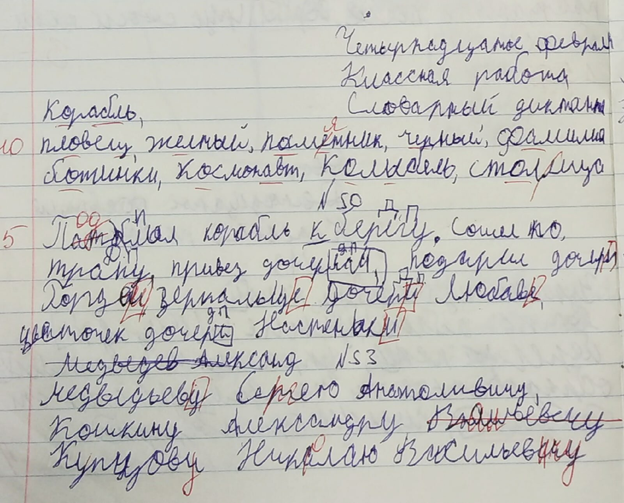 Четырнадцатое февраля
Классная работа
Словарный диктант
Корабль,
пловец, желтый, памятник, черный, фамилия
ботинки, космонавт, колыбель, столица
N 50
5 корабль к берегу. Сошел по
трапу, привез дочерям, подарки дочери
зеркальце дочери Любаве,
цветочек дочери Настеньки
Медведев Александ N 53
Медведьеву Сергею Анатоливичу,
Кошкину Александру
Купцову Николаю Васильевичу